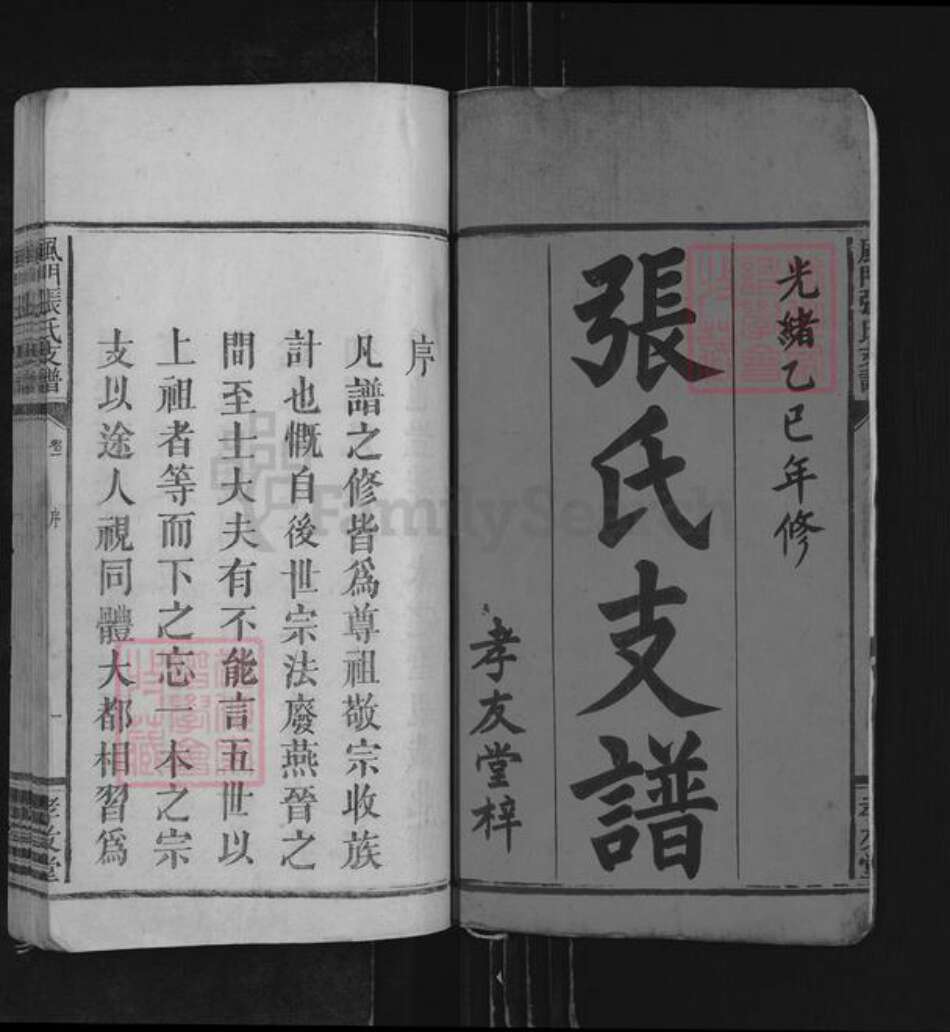 光緒乙巳年修
張氏支譜
孝友堂梓
序
凡譜之修皆爲尊祖敬宗收族
計也慨自後世宗法廢燕晉之
間至士大夫有不能言五世以
上祖者等而下之忘一本之宗
支以途人視同體大都相習爲
風門張氏支譜
卷一
序
一
孝友堂
FamilySearch